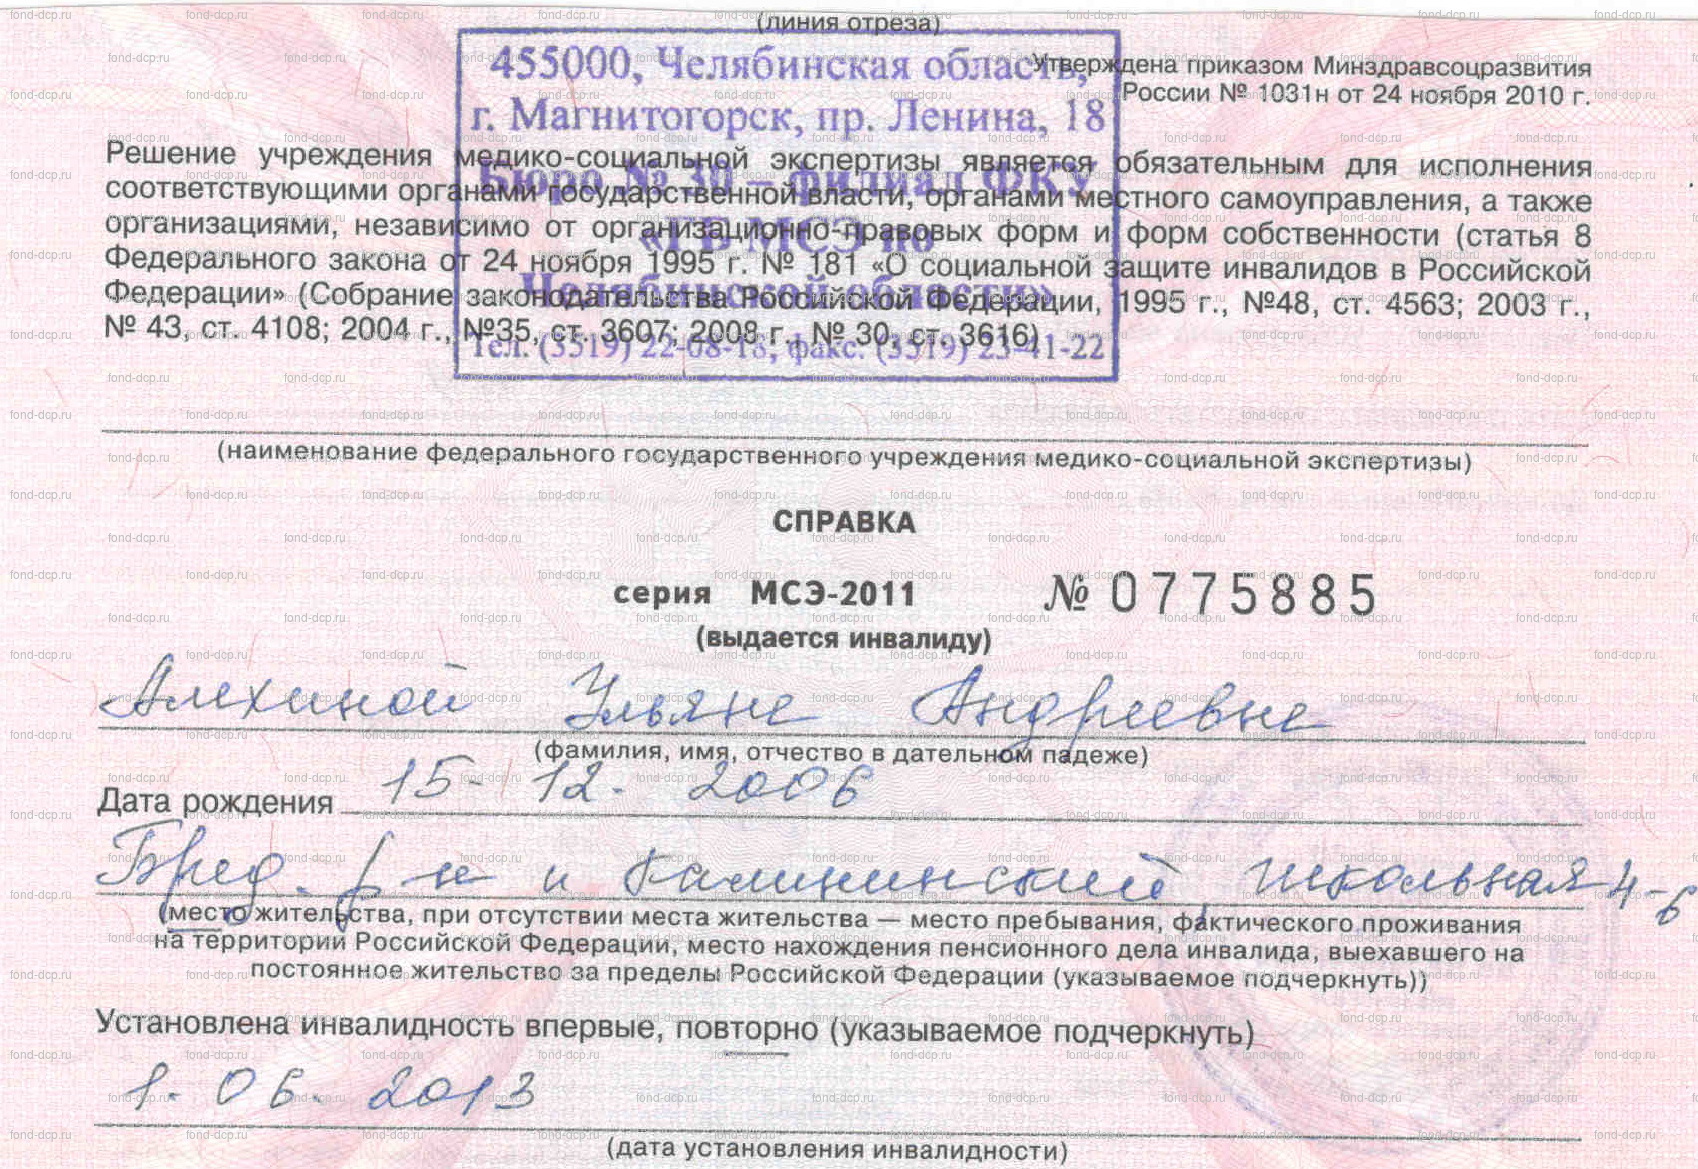 (линия отреза)
455000, Челябинская область,
г. Магнитогорск, пр. Ленина, 18
Бюро № 38 – филиал ФКУ
«ГБ МСЭ по
Челябинской области»
Тел. (3519) 22-08-18, факс. (3519) 23-41-22
Утверждена приказом Минздравсоцразвития
России № 1031н от 24 ноября 2010 г.
Решение учреждения медико-социальной экспертизы является обязательным для исполнения
соответствующими органами государственной власти, органами местного самоуправления, а также
организациями, независимо от организационно-правовых форм и форм собственности (статья 8
Федерального закона от 24 ноября 1995 г. № 181 «О социальной защите инвалидов в Российской
Федерации» (Собрание законодательства Российской Федерации, 1995 г., №48, ст. 4563; 2003 г.,
№ 43, ст. 4108; 2004 г., №35, ст. 3607; 2008 г., № 30, ст. 3616)
(наименование федерального государственного учреждения медико-социальной экспертизы)
СПРАВКА
серия МСЭ-2011 № 0775885
(выдается инвалиду)
Алехиной Ульяне Андреевне
(фамилия, имя, отчество в дательном падеже)
Дата рождения 15-12. 2006
Бред. р-н п Калининский, Школьная 4-6
(место жительства, при отсутствии места жительства — место пребывания, фактического проживания
на территории Российской Федерации, место нахождения пенсионного дела инвалида, выехавшего на
постоянное жительство за пределы Российской Федерации (указываемое подчеркнуть))
Установлена инвалидность впервые, повторно (указываемое подчеркнуть)
1. 06. 2013
(дата установления инвалидности)
fond-dcp.ru